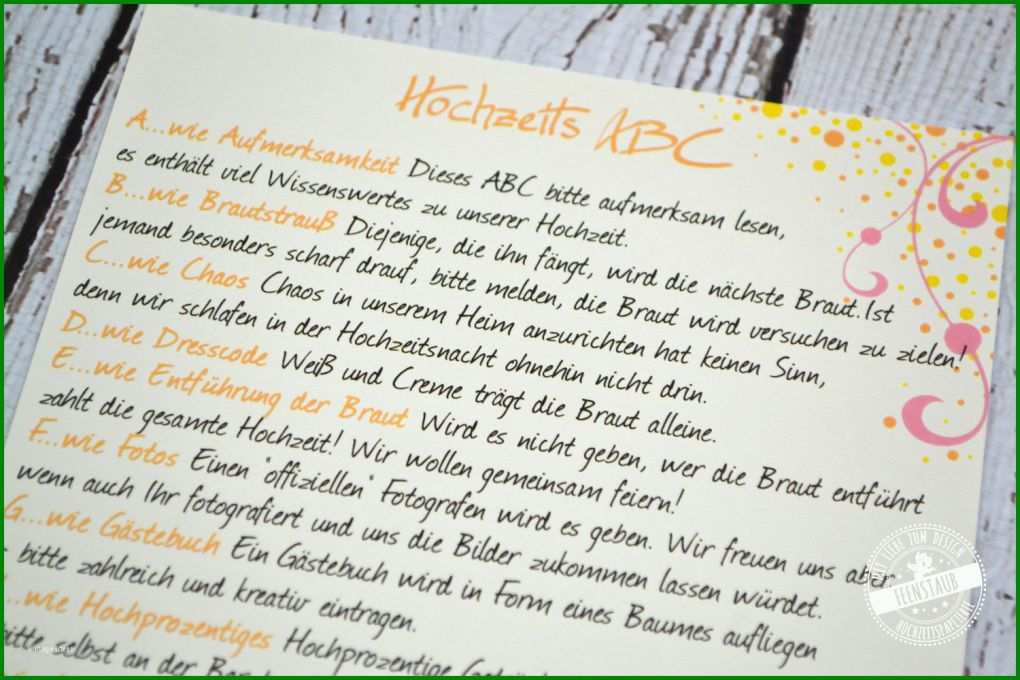 Hochzeits ABC
A...wie Aufmerksamkeit Dieses ABC bitte aufmerksam lesen,
es enthält viel Wissenswertes zu unserer Hochzeit.
B...wie Brautstrauß Diejenige, die ihn fängt, wird die nächste Braut. Ist
jemand besonders scharf drauf, bitte melden, die Braut wird versuchen zu zielen!
C...wie Chaos Chaos in unserem Heim anzurichten hat keinen Sinn,
denn wir schlafen in der Hochzeitsnacht ohnehin nicht drin.
D...wie Dresscode Weiß und Creme trägt die Braut alleine.
E...wie Entführung der Braut Wird es nicht geben, wer die Braut entführt
zahlt die gesamte Hochzeit! Wir wollen gemeinsam feiern!
F...wie Fotos Einen "offiziellen" Fotografen wird es geben. Wir freuen uns aber
wenn auch Ihr fotografiert und uns die Bilder zukommen lassen würdet.
G...wie Gästebuch Ein Gästebuch wird in Form eines Baumes aufliegen
- bitte zahlreich und kreativ eintragen.
...wie Hochprozentiges Hochprozentige
bitte selbst an der
MIT LIEBE ZUM DESIGN
FEENSTAUB
HOCHZEITSPAPETERIE